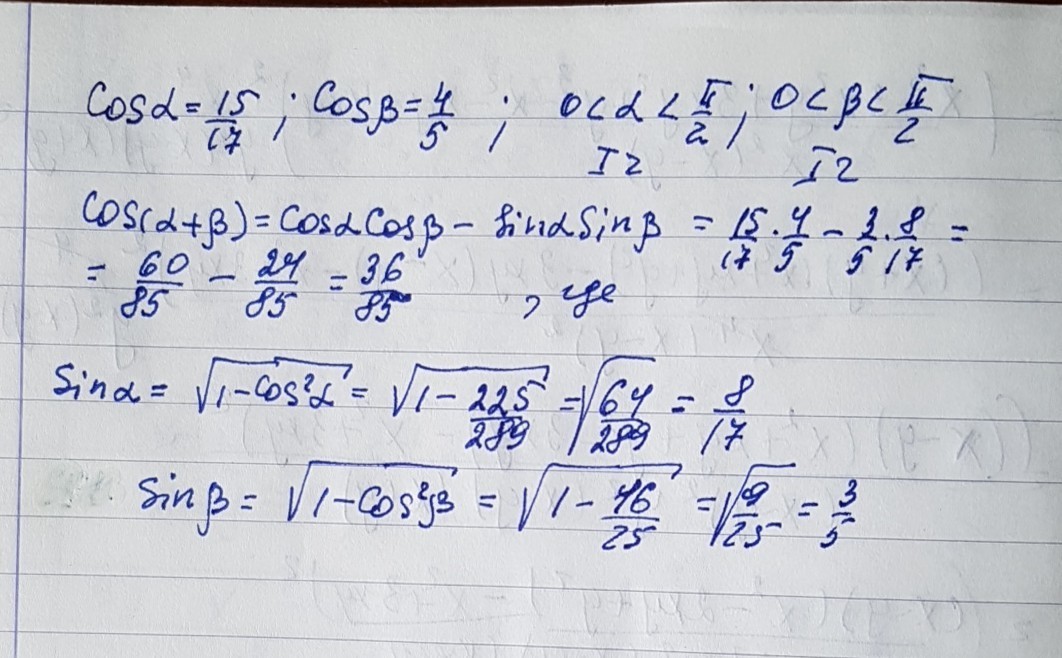 Cosα = 15/17 ; Cosβ = 4/5 ; 0 < α < π/2 ; 0 < β < π/2
I г I г
Cos(α+β) = Cosα Cosβ - Sinα Sinβ = 15/17 · 4/5 - 3/5 · 8/17 =
= 60/85 - 24/85 = 36/85 , где
Sinα = √(1-Cos²α) = √(1 - 225/289) = √(64/289) = 8/17
Sinβ = √(1-Cos²β) = √(1 - 16/25) = √(9/25) = 3/5